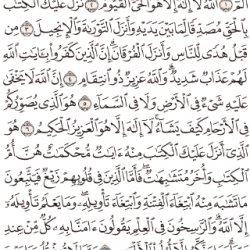 ٱللَّهُ لَآ إِلَٰهَ إِلَّا هُوَ ٱلْحَىُّ ٱلْقَيُّومُ ٢ نَزَّلَ عَلَيْكَ ٱلْكِتَٰبَ
بِٱلْحَقِّ مُصَدِّقًا لِّمَا بَيْنَ يَدَيْهِ وَأَنزَلَ ٱلتَّوْرَىٰةَ وَٱلْإِنجِيلَ ٣ مِن
قَبْلُ هُدًى لِّلنَّاسِ وَأَنزَلَ ٱلْفُرْقَانَ إِنَّ ٱلَّذِينَ كَفَرُوا۟ بِـَٔايَٰتِ ٱللَّهِ
لَهُمْ عَذَابٌ شَدِيدٌ وَٱللَّهُ عَزِيزٌ ذُو ٱنتِقَامٍ ٤ إِنَّ ٱللَّهَ لَا يَخْفَىٰ
عَلَيْهِ شَىْءٌ فِى ٱلْأَرْضِ وَلَا فِى ٱلسَّمَآءِ ٥ هُوَ ٱلَّذِى يُصَوِّرُكُمْ
فِى ٱلْأَرْحَامِ كَيْفَ يَشَآءُ لَآ إِلَٰهَ إِلَّا هُوَ ٱلْعَزِيزُ ٱلْحَكِيمُ ٦ هُوَ
ٱلَّذِىٓ أَنزَلَ عَلَيْكَ ٱلْكِتَٰبَ مِنْهُ ءَايَٰتٌ مُّحْكَمَٰتٌ هُنَّ أُمُّ
ٱلْكِتَٰبِ وَأُخَرُ مُتَشَٰبِهَٰتٌ فَأَمَّا ٱلَّذِينَ فِى قُلُوبِهِمْ زَيْغٌ فَيَتَّبِعُونَ
مَا تَشَٰبَهَ مِنْهُ ٱبْتِغَآءَ ٱلْفِتْنَةِ وَٱبْتِغَآءَ تَأْوِيلِهِۦ وَمَا يَعْلَمُ تَأْوِيلَهُۥٓ
إِلَّا ٱللَّهُ وَٱلرَّٰسِخُونَ فِى ٱلْعِلْمِ يَقُولُونَ ءَامَنَّا بِهِۦ كُلٌّ مِّنْ عِندِ